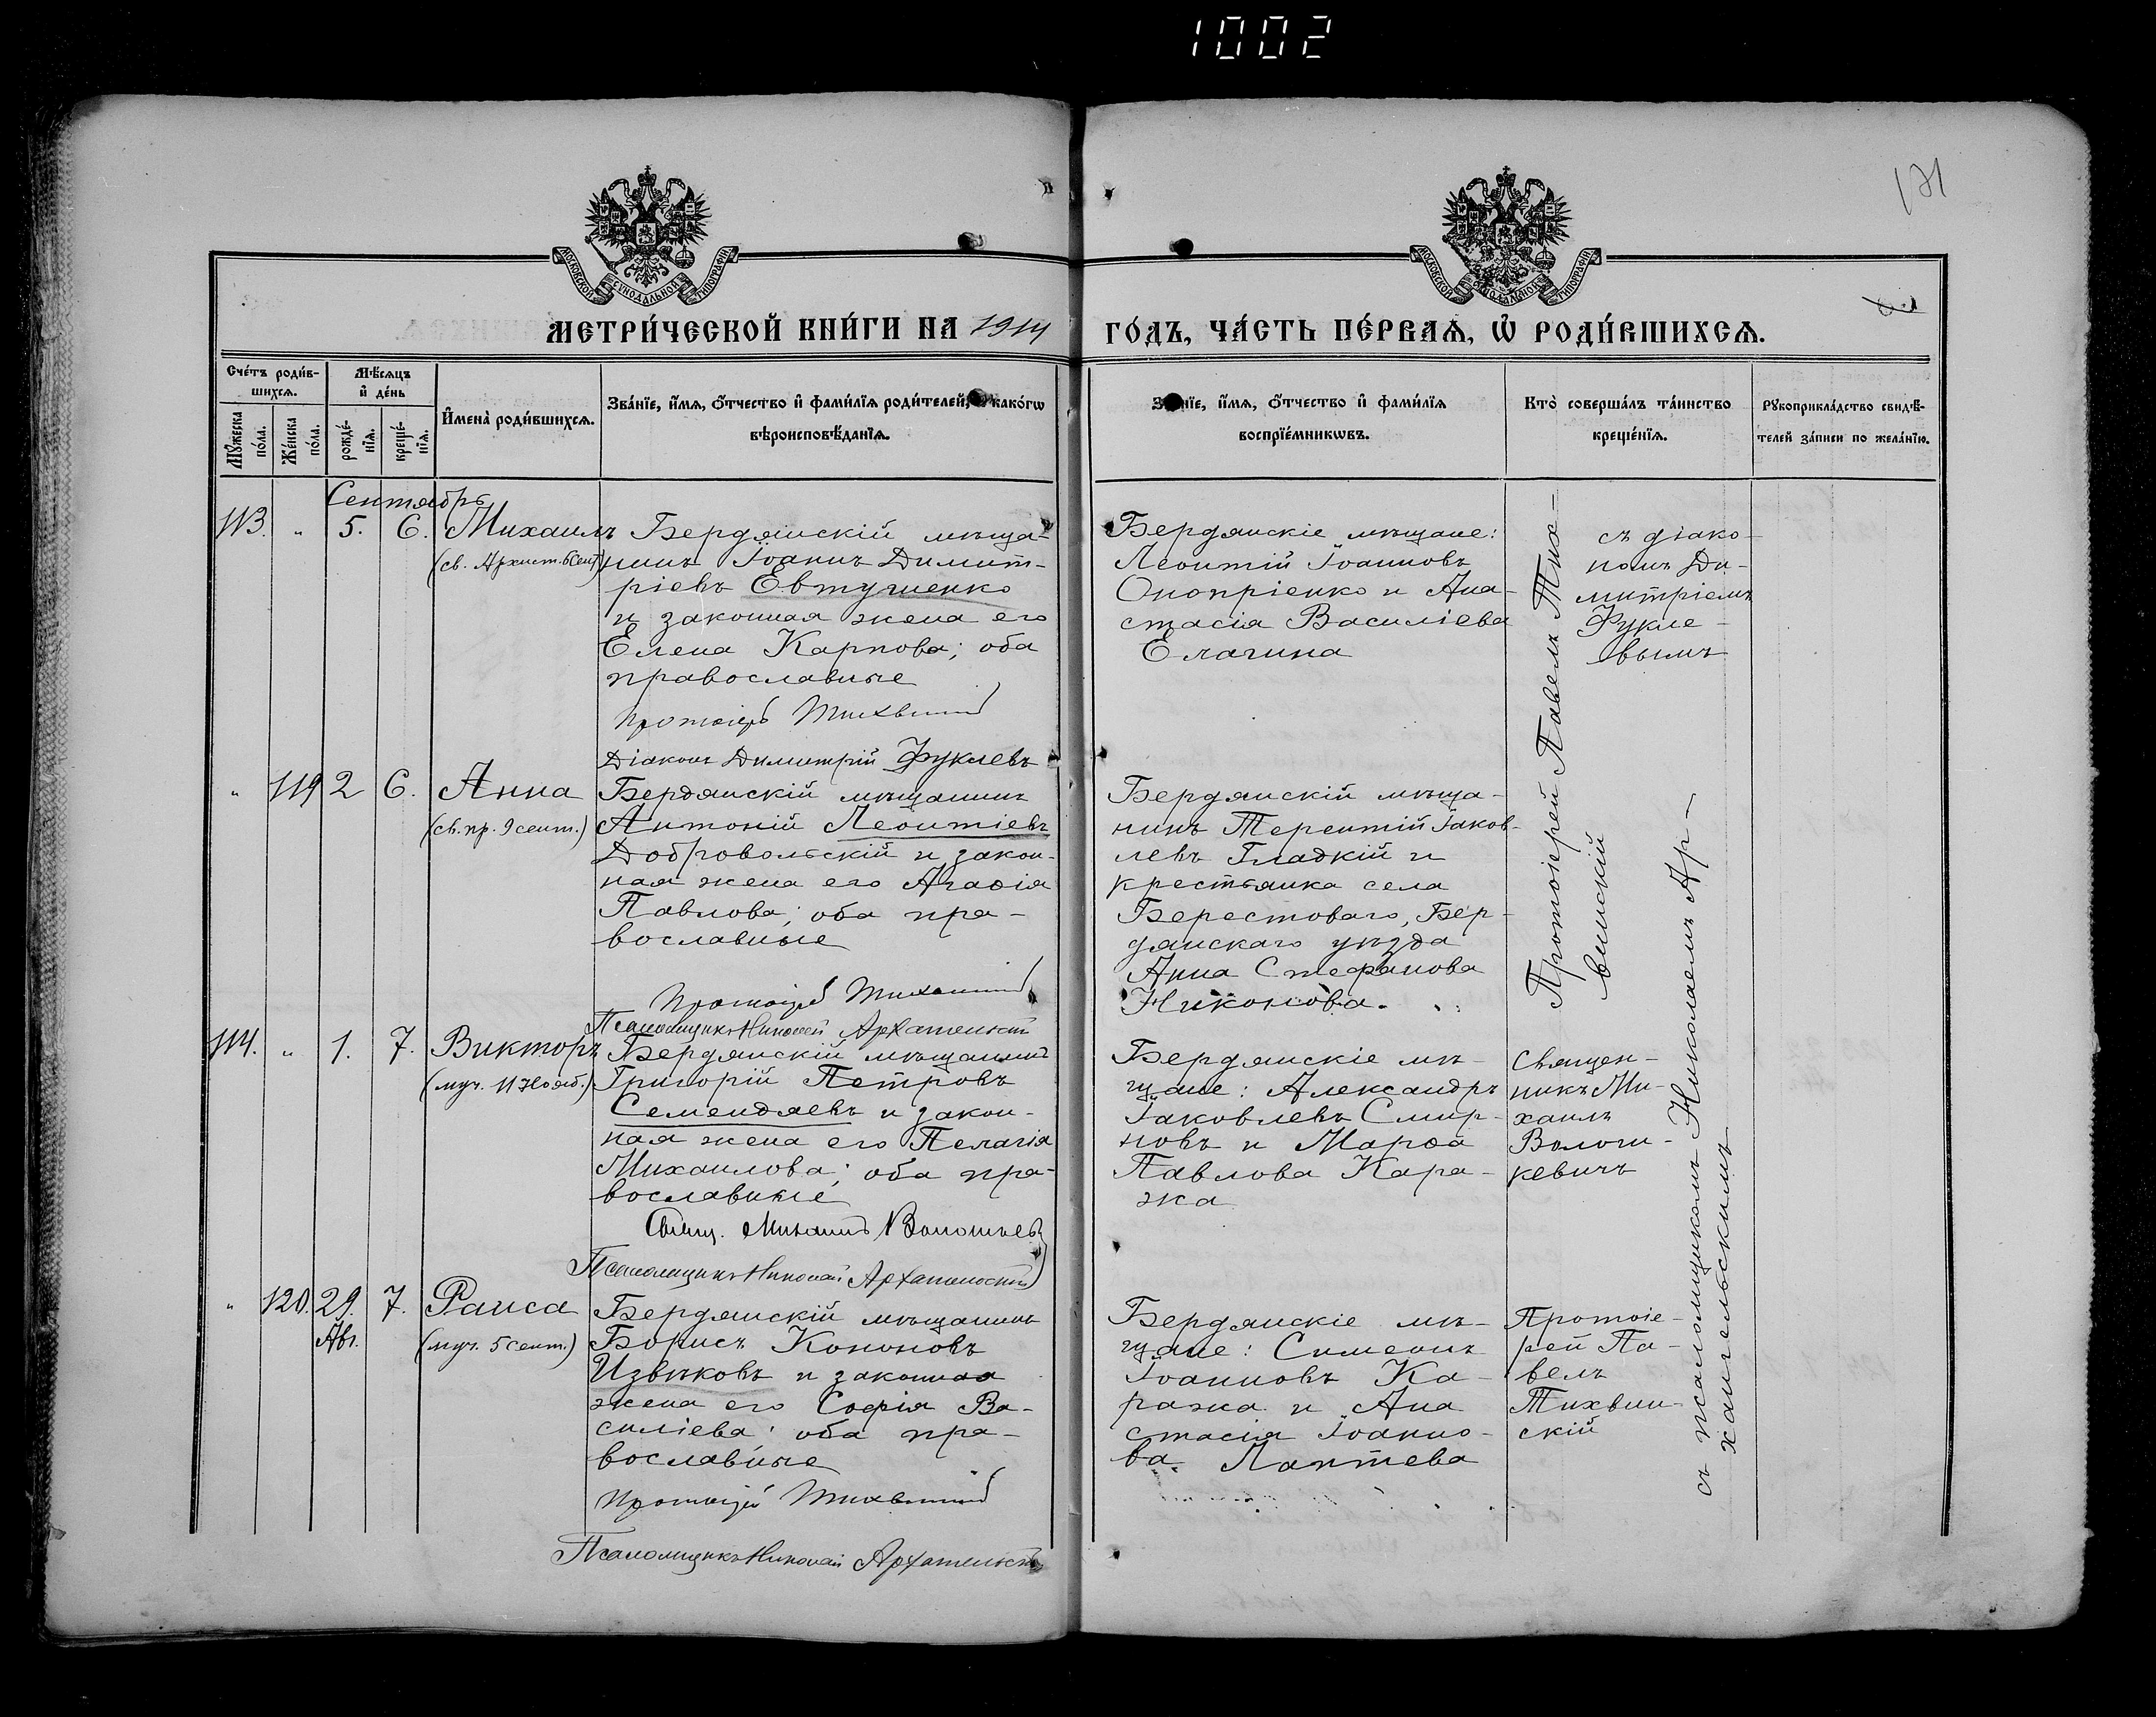 1002
171
МОСКОВСКОЙ СѴНОДАЛЬНОЙ ТИПОГРАФІИ
МОСКОВСКОЙ СѴНОДАЛЬНОЙ ТИПОГРАФІИ
МЕТРИ́ЧЕСКОЙ КНИ́ГИ НА 1914 ГО́ДЪ, ЧА́СТЬ ПЕ́РВАѦ, Ѡ҆ РОДИ́ВШИХСѦ.
Сче́тъ роди́в-
шихсѧ.
Мѣ́сѧцъ
и҆ де́нь
Мꙋ́жеска
по́ла.
Же́нска
по́ла.
рожде́-
нїѧ.
креще́-
нїѧ.
И҆мена̀ роди́вшихсѧ.
Зва́нїе, и҆́мѧ, ѻ҆́тчество и҆ фами́лїѧ роди́телей, и҆ како́гѡ
вѣроисповѣ́данїѧ.
Зва́нїе, и҆́мѧ, ѻ҆́тчество и҆ фами́лїѧ
воспрїе́мникѡвъ.
Кто̀ соверша́лъ та́инство
креще́нїѧ.
Рꙋкоприкла́дство свидѣ́-
телей за́писи по жела́нїю.
Сентябрь
113. " 5. 6. Михаилъ
(св. Архист. 6 Сент.)
Бердянскій мѣща-
нинъ Іоаннъ Димит-
ріевъ Евтушенко
и законная жена его
Елена Карпова; оба
православные
Протоіерей Тихвинскій
Діаконъ Димитрій Фуклевъ
Бердянскіе мѣщане:
Леонтій Іоанновъ
Оноприенко и Ана-
стасія Василіева
Елагина
Протоіерей Павелъ Тих-
винскій
съ діако-
номъ Ди-
митріемъ
Фукле-
вымъ
" 119 2 6. Анна
(св. пр. 9 сент.)
Бердянскій мѣщанинъ
Антоній Леонтіевъ
Добровольскій и закон-
ная жена его Агаѳія
Павлова; оба пра-
вославные
Протоіерей Тихвинскій
Псаломщикъ Николай Архангельскій
Бердянскій мѣща-
нинъ Терентій Іаков-
левъ Гладкій и
крестьянка села
Берестоваго, Бер-
дянскаго уѣзда
Анна Стефанова
Никонова.
114. " 1. 7. Викторъ
(муч. 11 Нояб.)
Бердянскій мѣщанинъ
Григорій Петровъ
Семендяевъ и закон-
ная жена его Пелагія
Михаилова; оба пра-
вославные
Свящ. Михаилъ
Псаломщикъ Николай Архангельскій
Бердянскіе мѣ-
щане: Александръ
Іаковлевъ Смир-
новъ и Марѳа
Павлова Кара-
жа
Священ-
никъ Ми-
хаилъ
съ псаломщикомъ Николаемъ Ар-
хангельскимъ
" 120. 29. 7. Раиса
Авг.
(муч. 5 сент.)
Бердянскій мѣщанинъ
Борисъ Кононовъ
Извѣковъ и законная
жена его Софія Ва-
силіева; оба пра-
вославные
Протоіерей Тихвинскій
Псаломщикъ Николай Архангельскій
Бердянскіе мѣ-
щане: Симеонъ
Іоанновъ Ка-
ража и Ана
стасія Іоанно-
ва Лаптева
Протоіе-
рей Па-
велъ
Тихвин-
скій